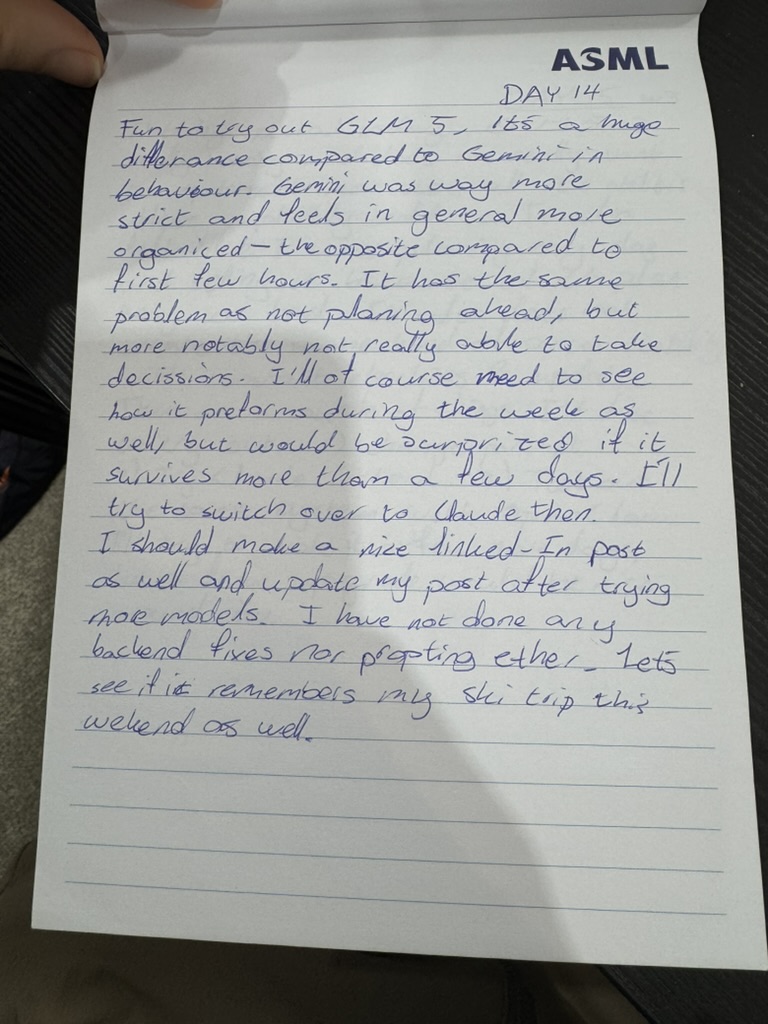 ASML
DAY 14
Fun to try out GLM 5, It's a huge
differance compared to Gemini in
behaviour. Gemini was way more
strict and feels in general more
organiced – the opposite compared to
first few hours. It has the same
problem as not planing ahead, but
more notably not really able to take
decissions. I'll of course need to see
how it preforms during the week as
well, but would be surprized if it
survives more than a few days. I'll
try to switch over to Claude then.
I should make a nice linked-In post
as well and update my post after trying
more models. I have not done any
backend fixes nor propting ether. Lets
see if it remembers my ski trip this
wekend as well.